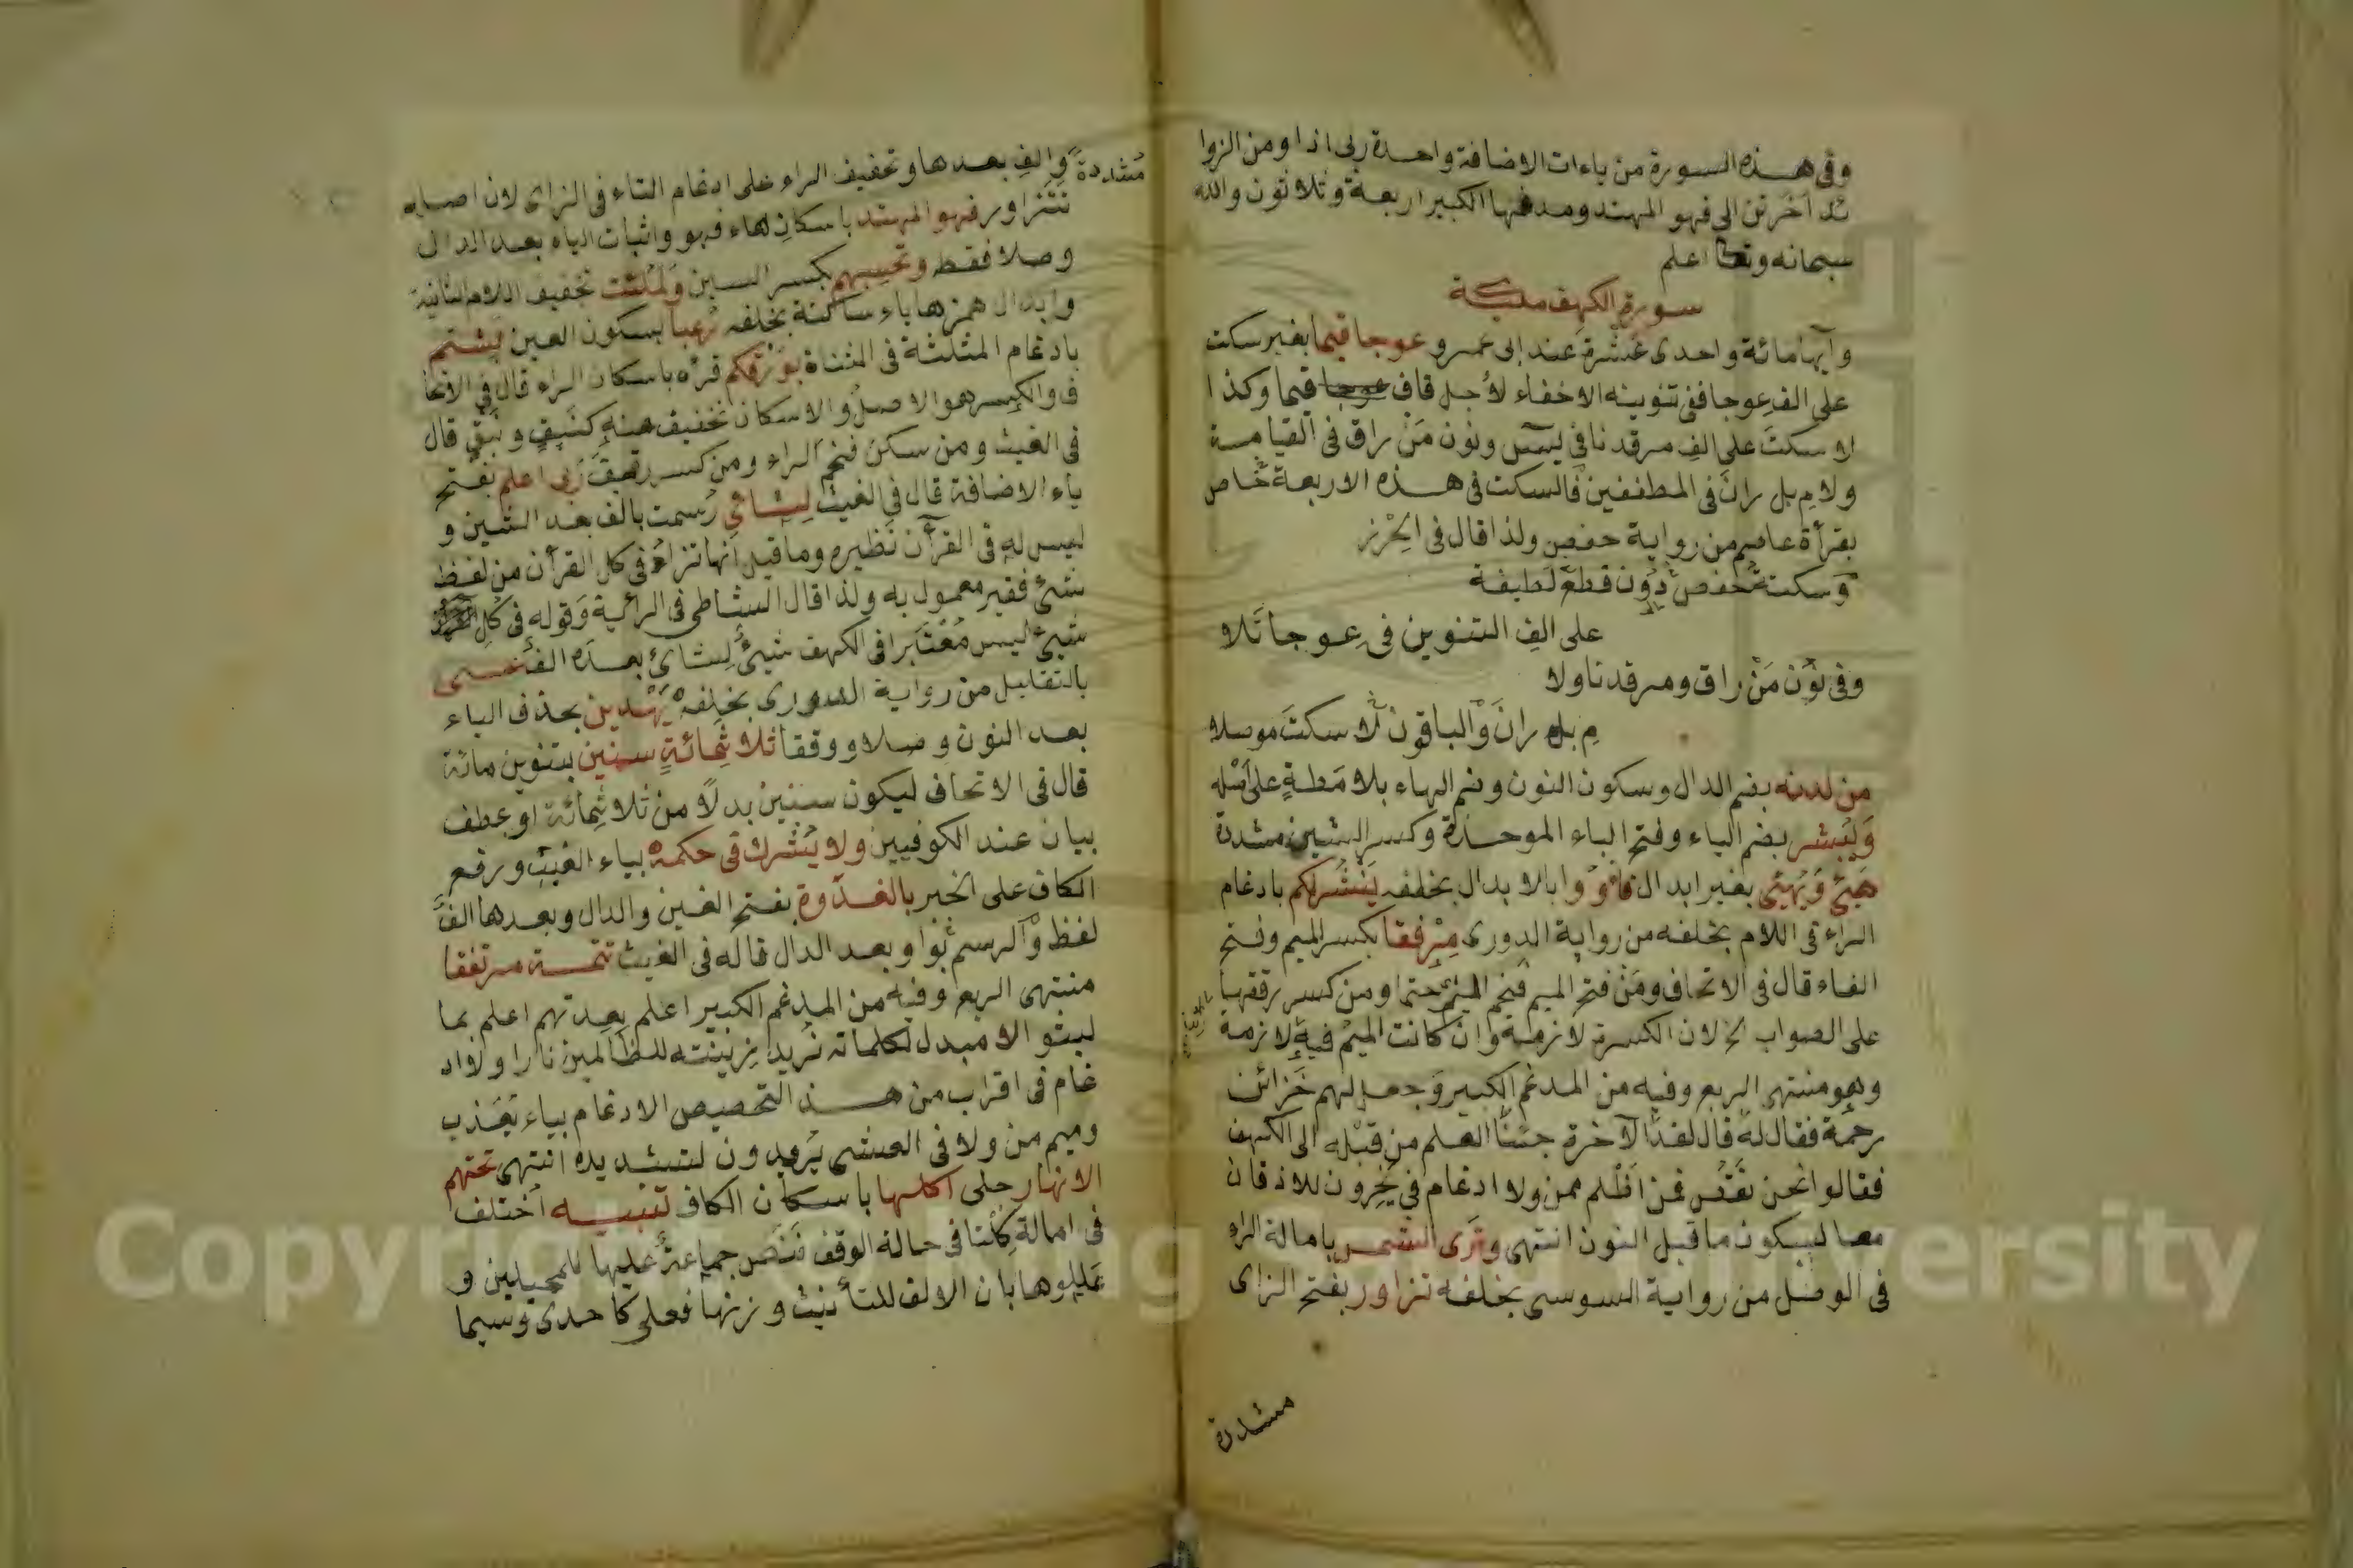 وفى هذه السورة من ياءات الاضافة واحدة ربى اذا ومن الزوا
ئد اخرتن الى فهو المهتد ومدغمها الكبير اربعة وثلاثون والله
سبحانه وتعا اعلم
سورة الكهف مكية
وآيها مائة واحدى عشرة عند ابى عمرو عوجا قيما بغير سكت
على الف عوجا ففى تنوينه الاخفاء لأجل قاف قيما وكذا
لا سكت على الف مرقدنا فى يس ونون من راق فى القيامة
ولام بل ران فى المطففين فالسكت فى هذه الاربعة خاص
بقرأة عاصم من رواية حفص ولذا قال فى الحرز
وسكتة حفص دون قطع لطيفة
على الف التنوين فى عوجا تلا
وفى نون من راق ومرقدنا ولا
م بل ران والباقون لا سكت موصلا
من لدنه بضم الدال وسكون النون وضم الهاء بلا مطة على اصله
ويبشر بضم الياء وفتح الباء الموحدة وكسر الشين مشددة
هيئ ويهيئ بغير ابدال فأووا بالابدال بخلفه ينشر لكم بادغام
الراء فى اللام بخلفه من رواية الدورى مرفقا بكسر الميم وفتح
الفاء قال فى الاتحاف ومن فتح الميم فخم حتما ومن كسر رققها
على الصواب الخ لان الكسرة لازمة وان كانت الميم فيه لازمة
وهو منتهى الربع وفيه من المدغم الكبير وجعل لهم خزائن
رحمة فقال له قال لقد الآخرة جئنا العلم من قبله الى الكهف
فقالوا نحن نقص فمن اظلم ممن ولا ادغام فى يخرون للاذقان
معا لسكون ما قبل النون انتهى وترى الشمس بامالة الراء
فى الوصل من رواية السوسى بخلفه تزاور بفتح الزاى
مشددة
مشددة والف بعدها وتخفيف الراء على ادغام التاء فى الزاى لان اصله
تتزاور فهو المهتد باسكان هاء فهو واثبات الياء بعد الدال
وصلا فقط وتحسبهم بكسر السين ولملئت تخفيف اللام الثانية
وابدال همزها ياء ساكنة بخلفه رعبا بسكون العين لبثتم
بادغام المثلثة فى المثناة بورقكم قرأه باسكان الراء قال فى الاتحا
ف والكسر هو الاصل والاسكان تخفيف منه كنبق ونبق قال
فى الغيث ومن سكن فخم الراء ومن كسر رقق ربى اعلم بفتح
ياء الاضافة قال فى الغيث لشائ رسمت بالف بعد الشين و
ليس له فى القرآن نظير وما قيل انها تزاد فى كل القرآن من لفظ
شئ فغير معمول به ولذا قال الشاطى فى الرائية وقوله فى كل
شيئ ليس معتبرا فى الكهف شيئ لشائ بعده الف عسى
بالتقليل من رواية الدورى بخلفه يهدين بحذف الياء
بعد النون وصلا ووقفا ثلاثمائة سنين بتنوين مائة
قال فى الاتحاف ليكون سنين بدلا من ثلاثمائة او عطف
بيان عند الكوفيين ولا يشرك فى حكمه بياء الغيب ورفع
الكاف على الخبر بالغدوة بفتح الغين والدال وبعدها الف
لفظ والرسم بواو بعد الدال قاله فى الغيث تتمة مرتفقا
منتهى الربع وفيه من المدغم الكبير اعلم بعدتهم اعلم بما
لبثوا لا مبدل لكلماته تريد زينة للظالمين نارا ولا اد
غام فى اقرب من هذا لتخصيص الادغام بياء يعذب
وميم من ولا فى العشى يريدون لتشديده انتهى تحتهم
الانهار جلى اكلها باسكان الكاف تنبيه اختلف
فى امالة كلتا فى حالة الوقف فنص جماعة عليها للمميلين و
عللوها بان الالف للتأنيث وزنها فعلى كاحدى وسيما